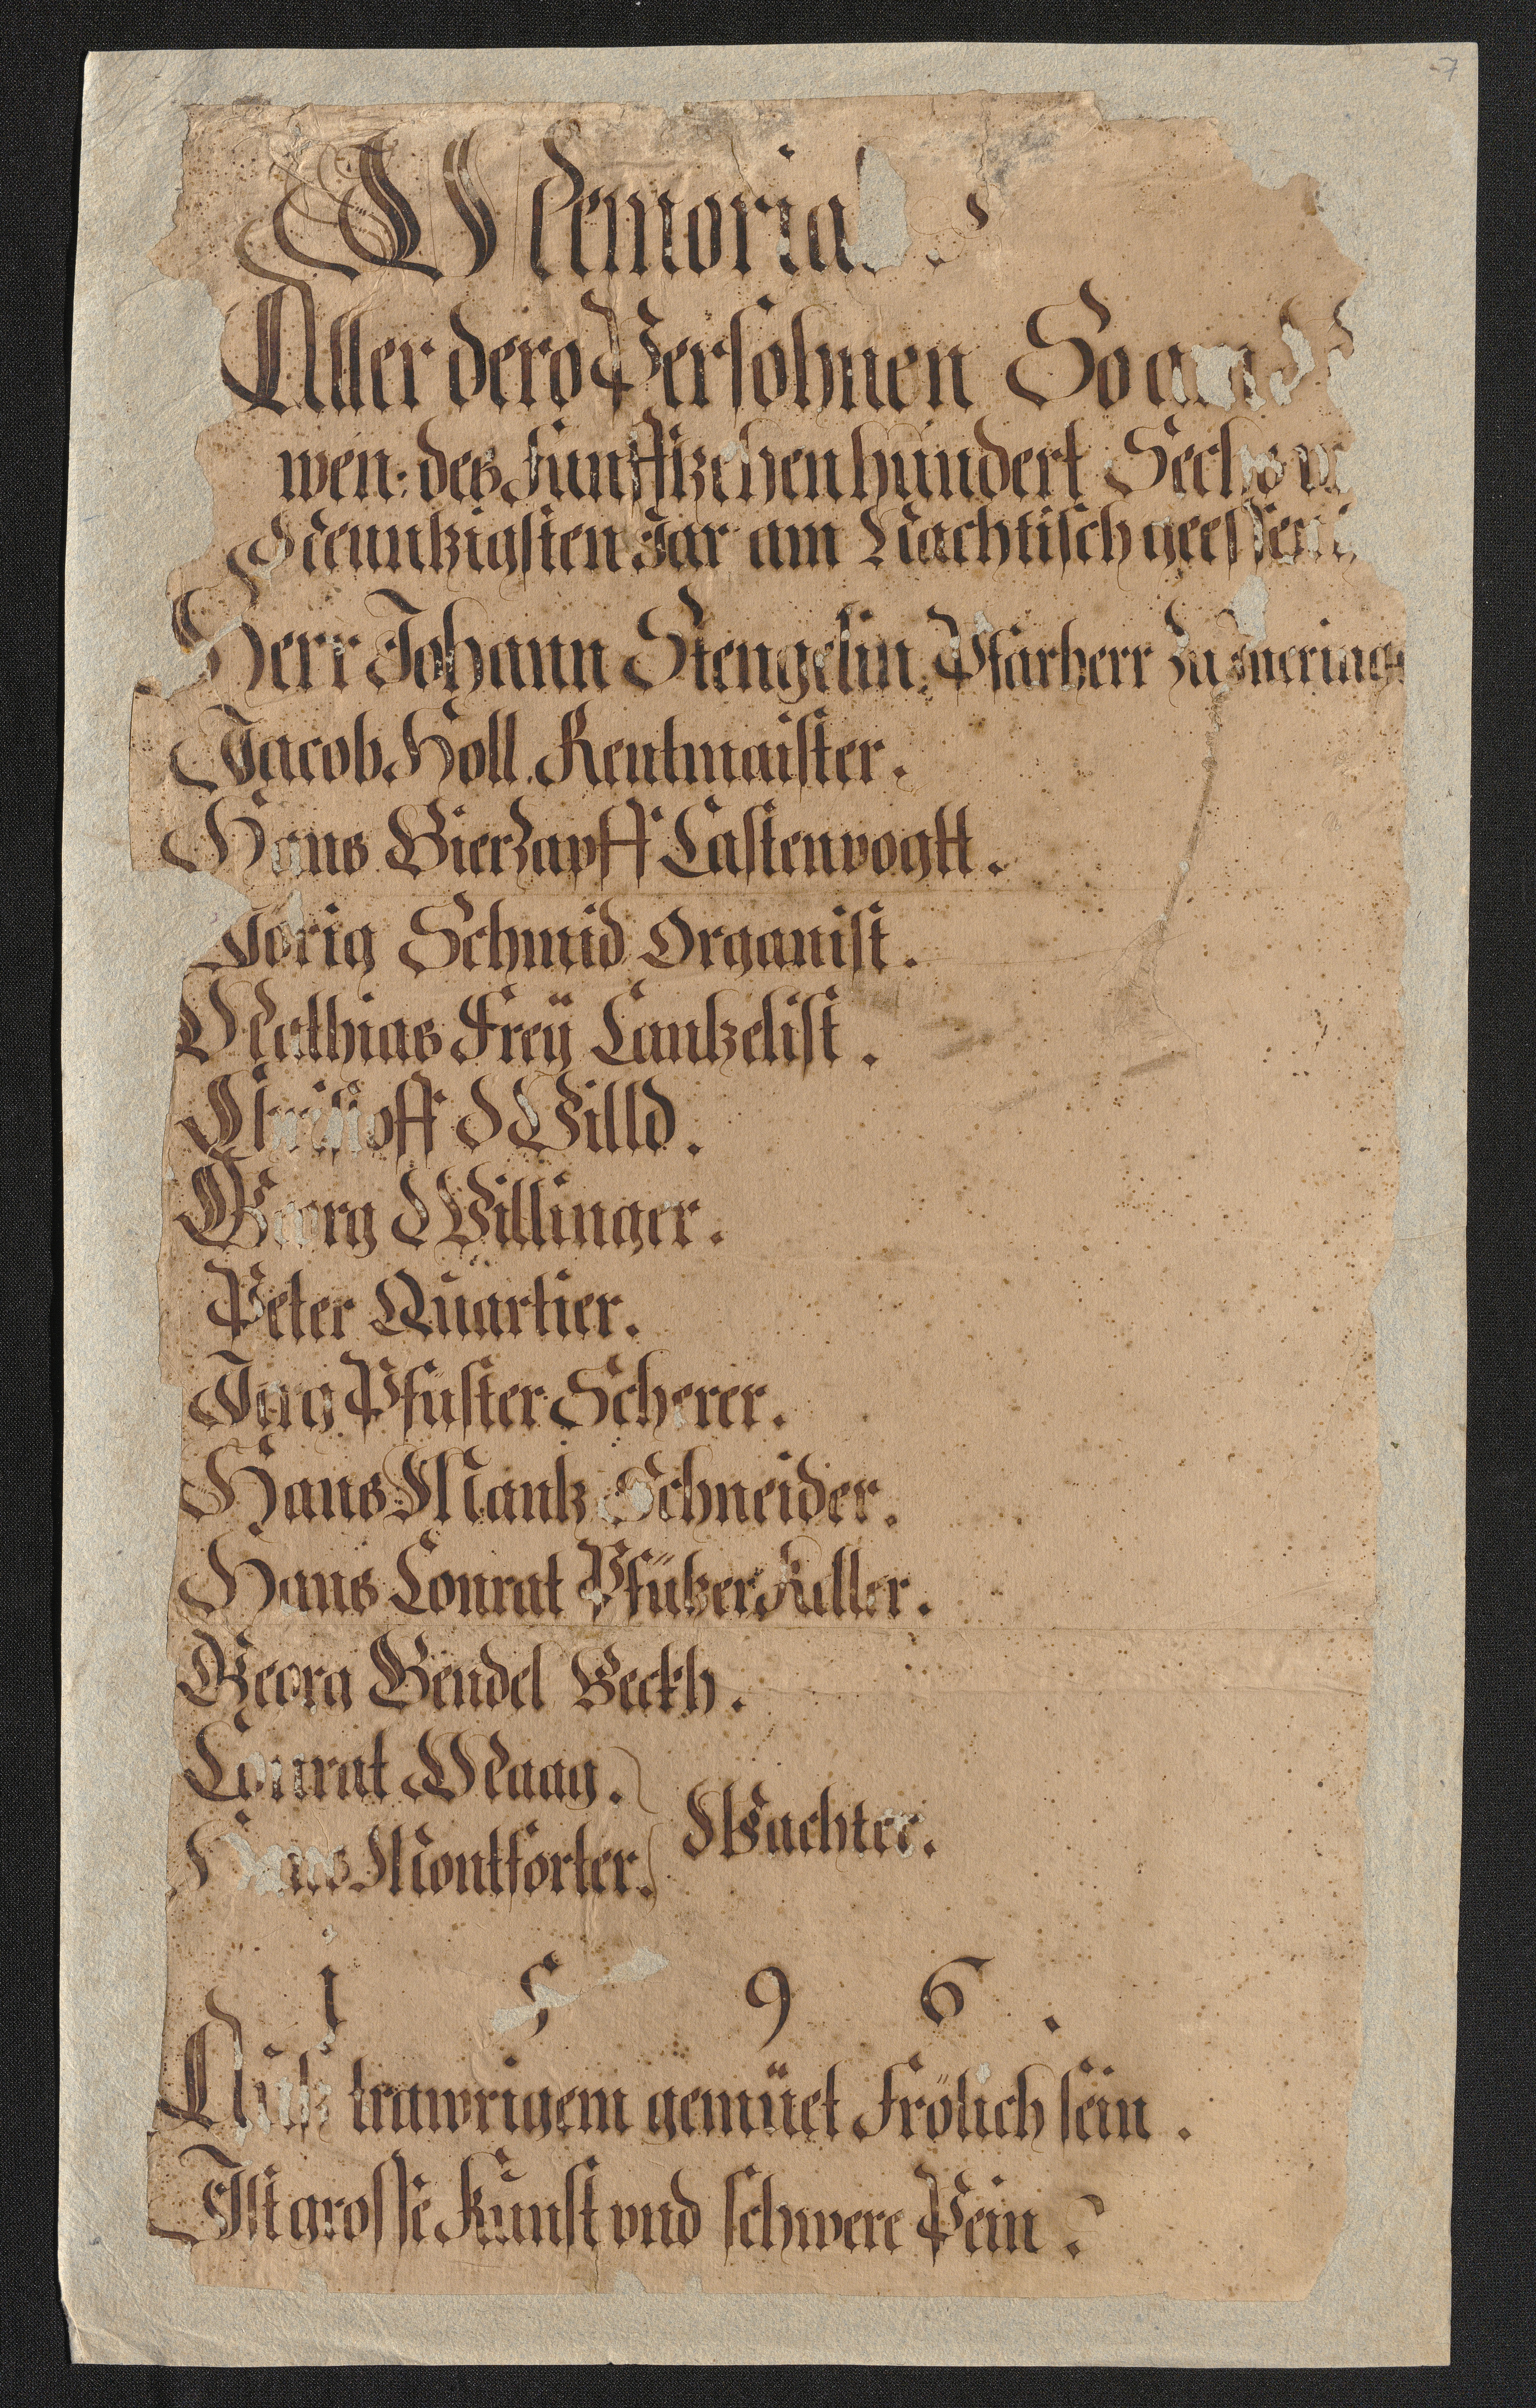 Memorial
Aller dero Persohnen So
wen: des funfftzehenhundert Sechs
Neuntzigsten Jar am Nachtisch geessen
Herr Johann Stengelin. Pfarherr zu Inering
Jacob Holl. Rentmaister.
Hans Bierzapff Castenvogtt.
Jörig Schmid Organist.
Mathias Freÿ Cantzelist.
Christoff Willd.
Georg Willinger.
Peter Quartier.
Jerg Pfuster Scherer.
Hans Mantz Schneider.
Hans Conrat Pfützer Keller.
Georg Gendel Beckh.
Conrat Maag.
Wachter.
Hans Montforter.
1 5 9 6.
Auß trawrigem gemüet Frölich sein.
Ist grosse Kunst vnd schwere Pein.
7